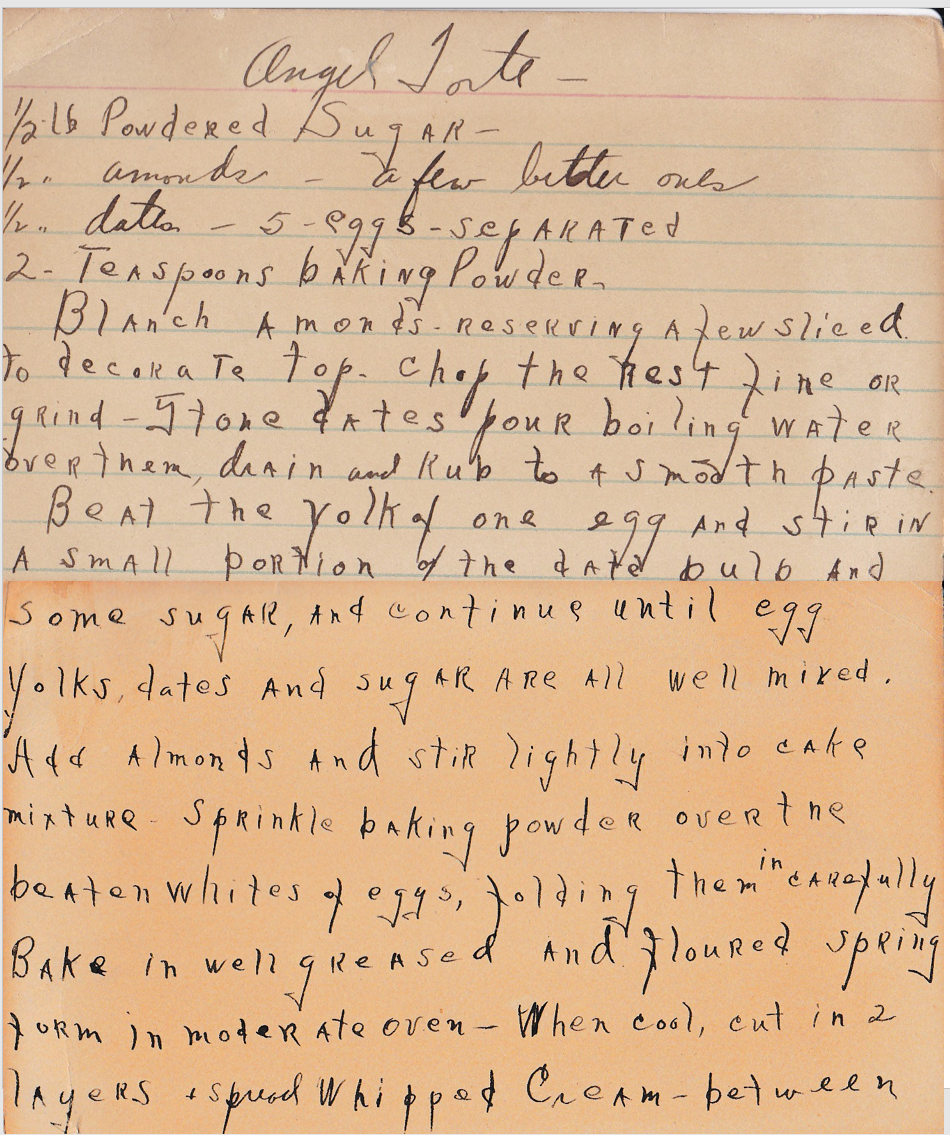 Angel Torte -
1/2 lb Powdered Sugar -
1/2 " amonds - a few bitter ones
1/2 " dates - 5 - eggs - separated
2 - Teaspoons baking Powder -
Blanch Amonds - reserving a few sliced
to decorate top - Chop the Rest fine or
grind - Stone dates pour boiling water
over them, drain and Rub to a smooth paste.
Beat the yolk of one egg and stir in
a small portion of the date bulb and
some sugar, and continue until egg
yolks, dates and sugar are all well mixed.
Add Almonds and stir lightly into cake
mixture - Sprinkle baking powder over the
beaten whites of eggs, folding them in carefully
Bake in well greased and floured spring
form in moderate oven - When cool, cut in 2
layers + spread Whipped Cream - between